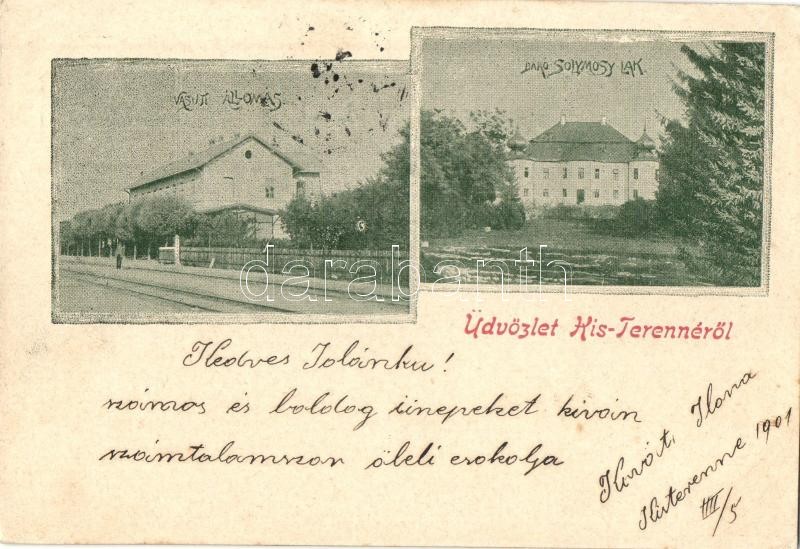 VASUTI ÁLLOMÁS.
BÁRÓ SOLYMOSY LAK.
darabanth
Üdvözlet Kis-Terennéről
Kedves Jolánku!
számos és boldog ünnepeket kíván
számtalanszor öleli csokolja
Ilona
Kisterenne 1901
IIII/5